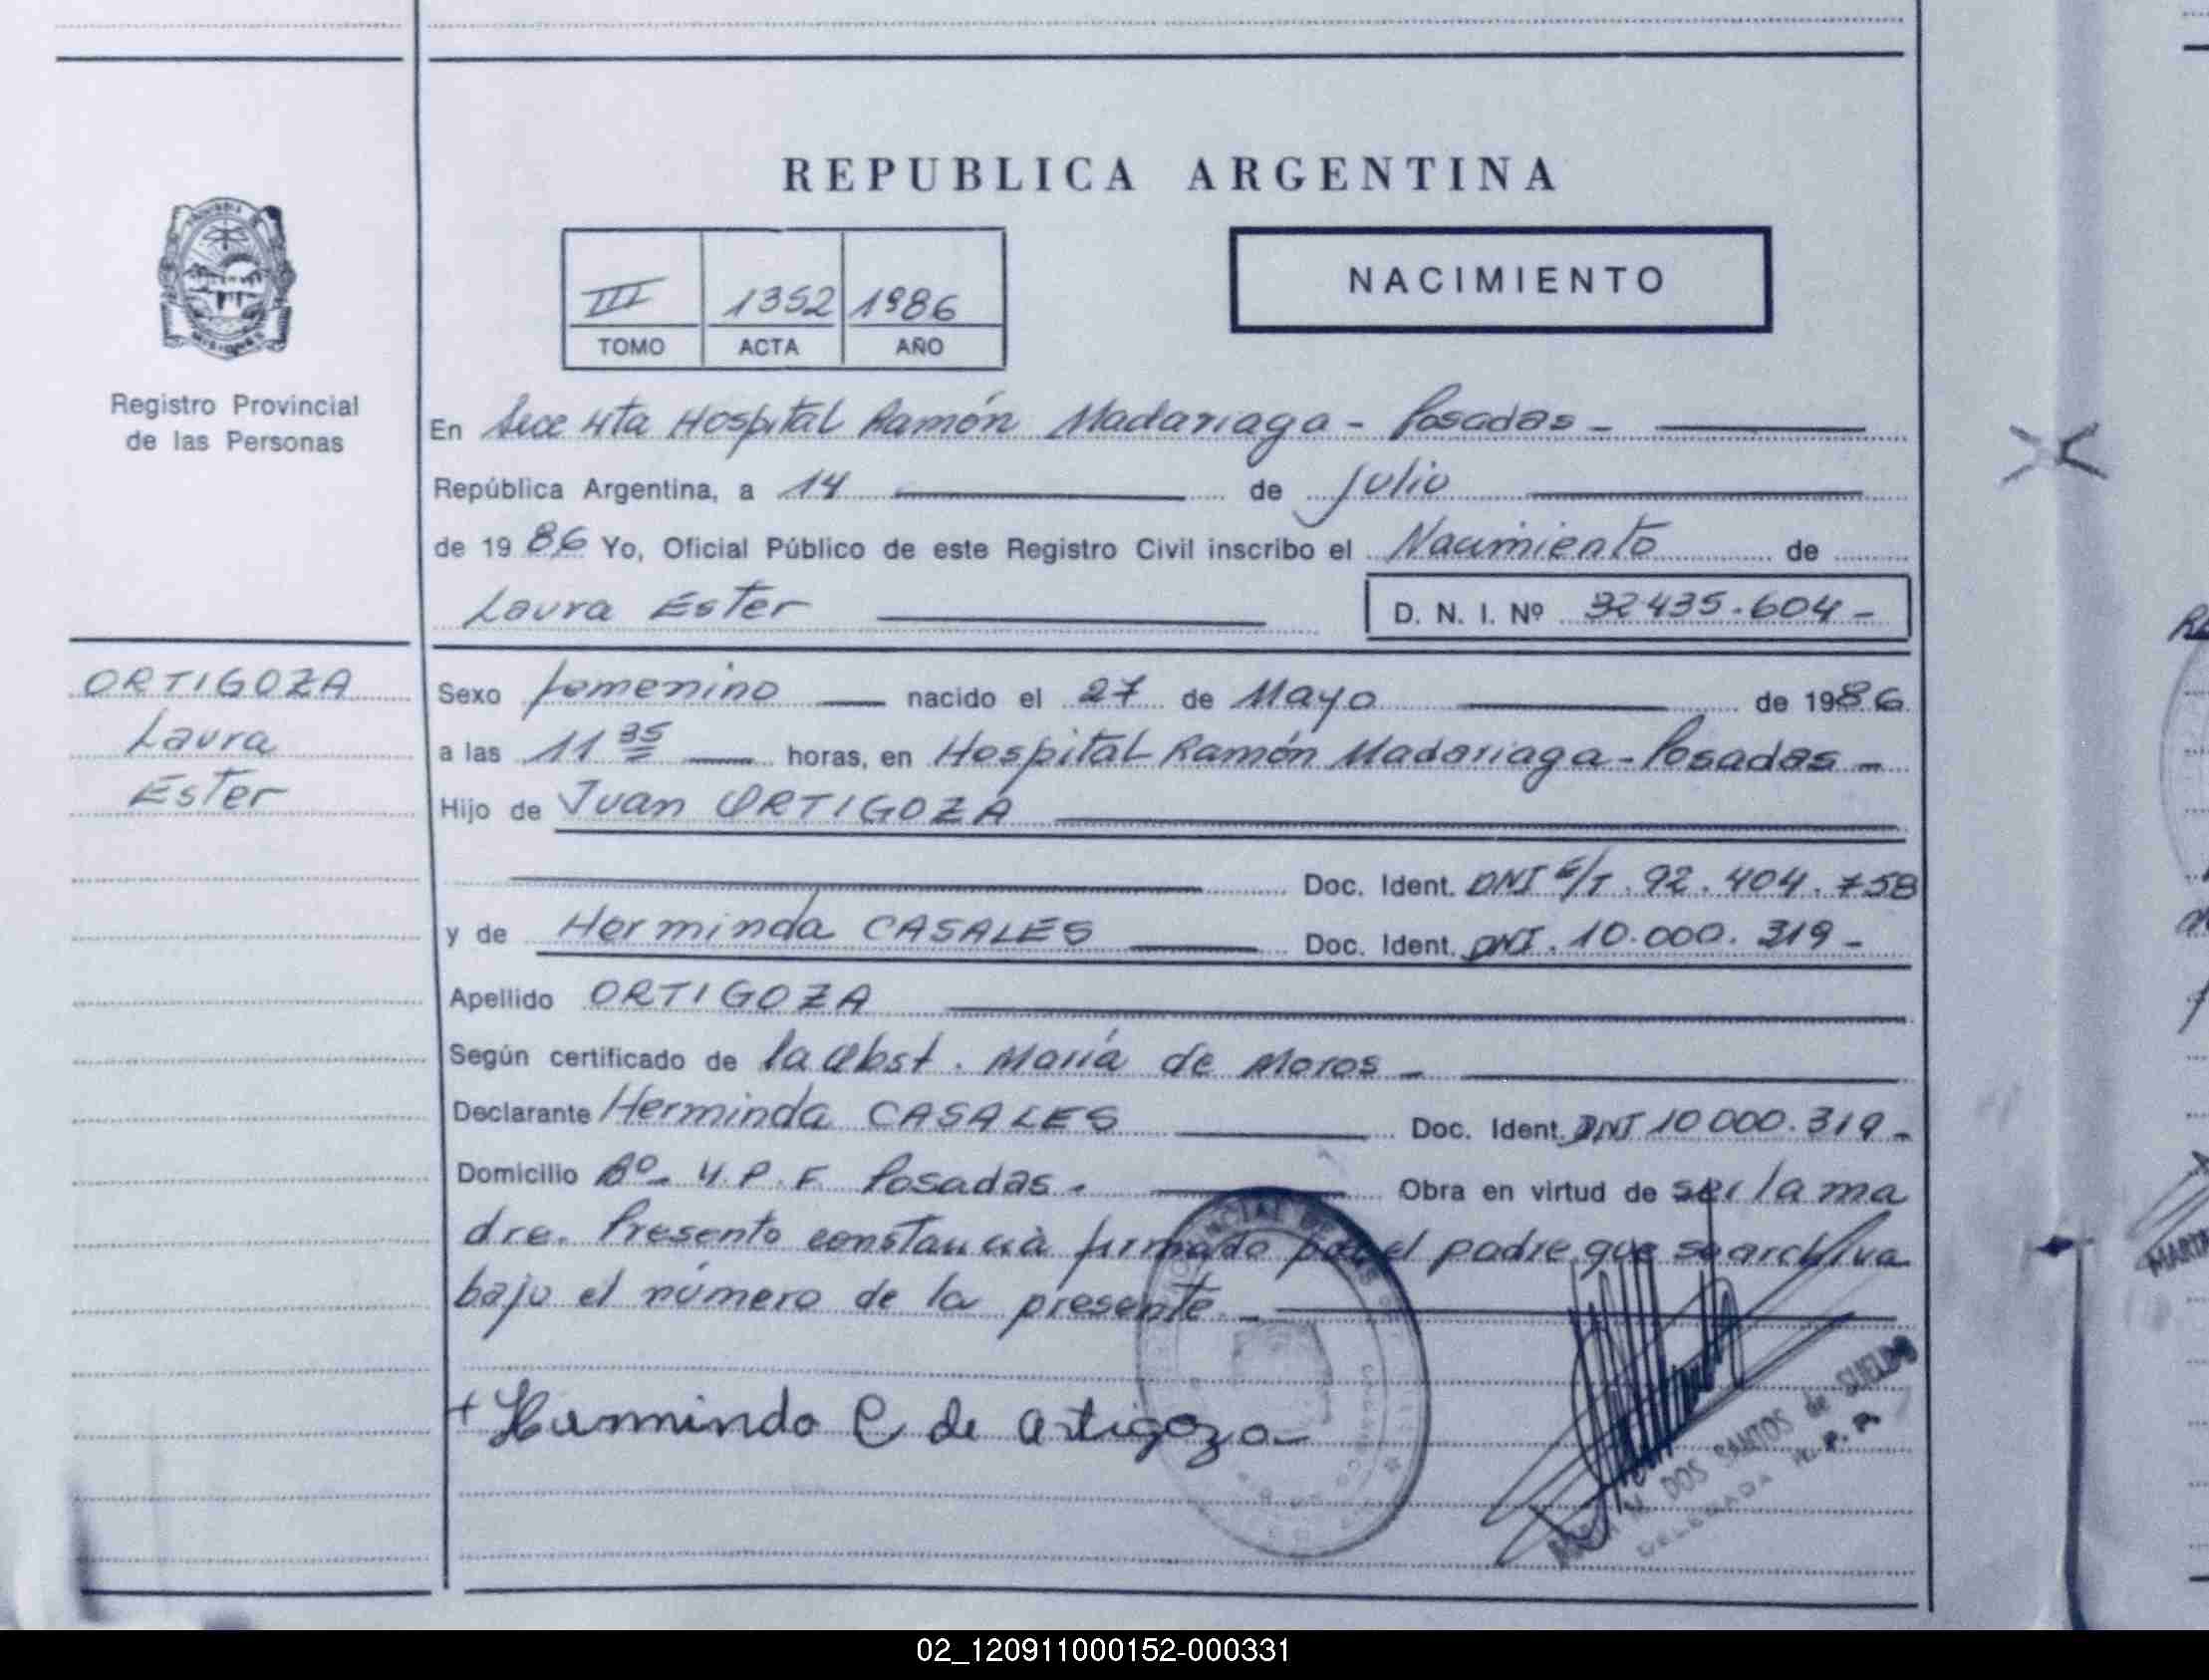 REPUBLICA ARGENTINA
NACIMIENTO
III 1352 1986
TOMO ACTA AÑO
Registro Provincial
de las Personas
En Secc 4ta Hospital Ramón Madariaga - Posadas -
República Argentina, a 14 de Julio
de 1986 Yo, Oficial Público de este Registro Civil inscribo el Nacimiento de
Laura Ester D. N. I. Nº 32435.604 -
ORTIGOZA
Laura
Ester
Sexo femenino nacido el 27 de Mayo de 1986
a las 11 35 horas, en Hospital Ramón Madariaga - Posadas -
Hijo de Juan ORTIGOZA
Doc. Ident. DNI E/T. 92.404.758
y de Herminda CASALES Doc. Ident. DNI. 10.000.319 -
Apellido ORTIGOZA
Según certificado de la Obst. María de Moros -
Declarante Herminda CASALES Doc. Ident. DNI 10 000.319 -
Domicilio Bº Y.P.F. Posadas. Obra en virtud de ser la ma
dre. Presento constancia firmada por el padre que se archiva
bajo el número de la presente. -
+ Herminda C de Ortigoza
DOS SANTOS de
DELEGADA R. P. P.
02_120911000152-000331